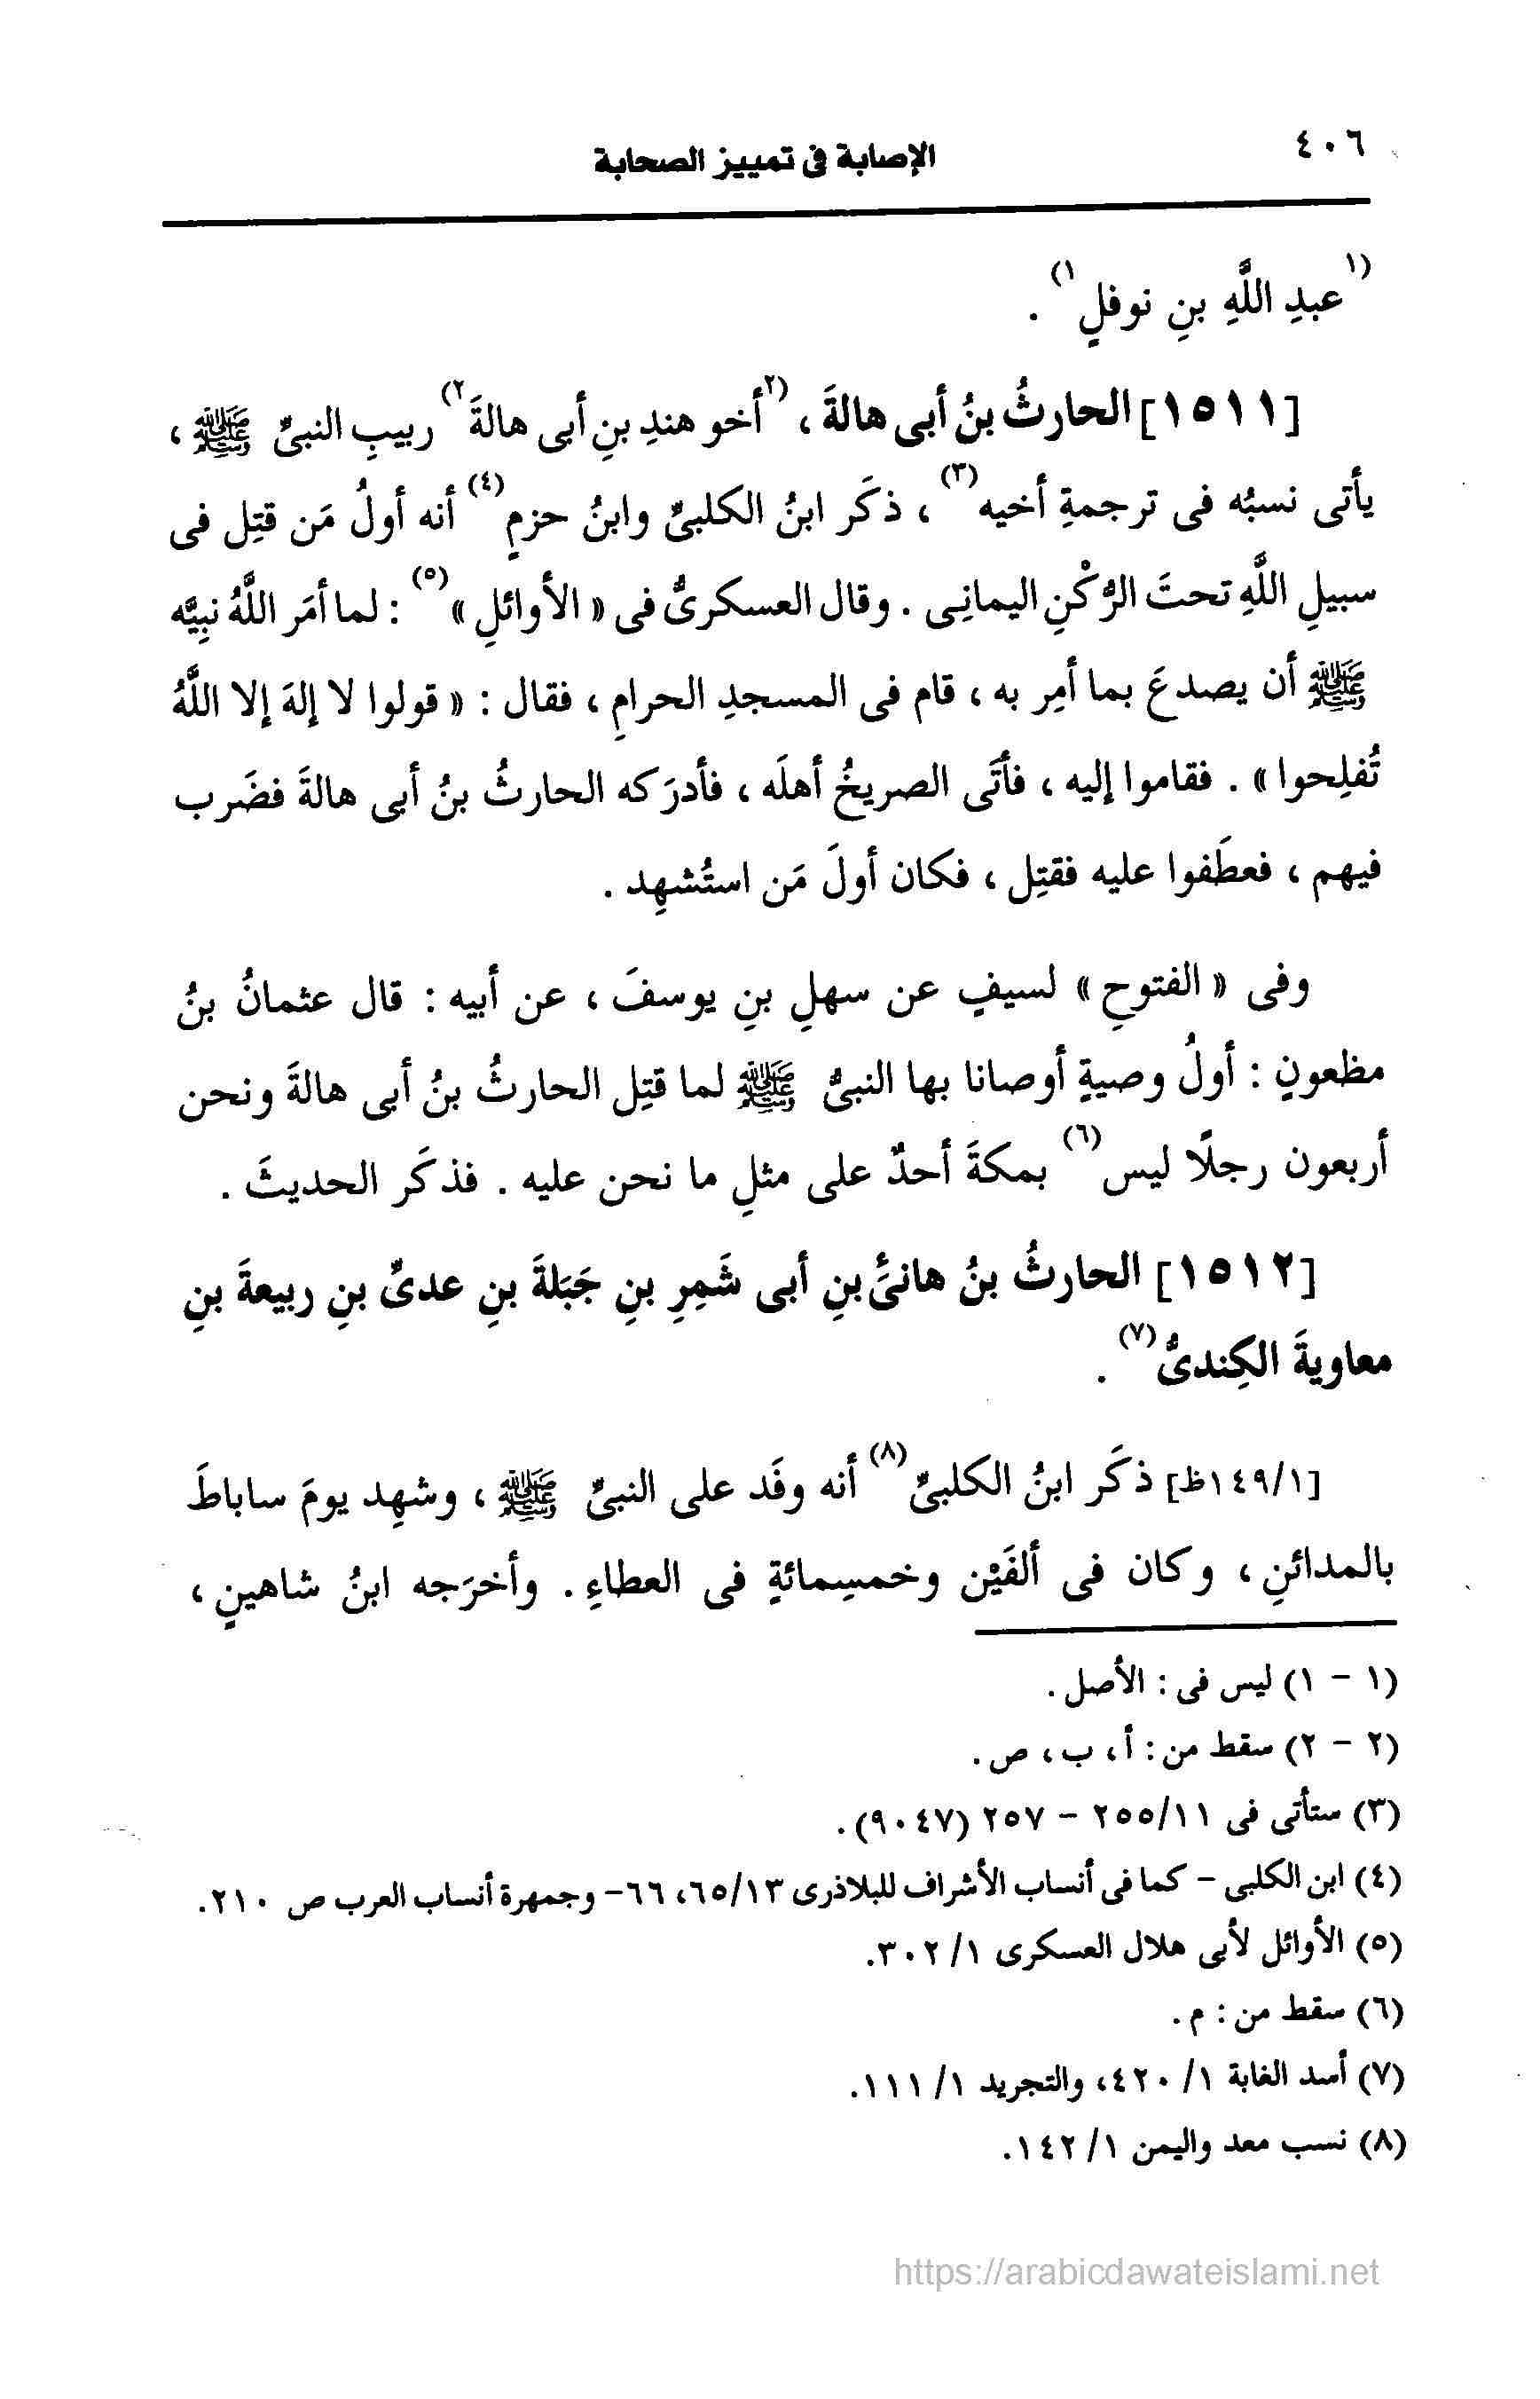 ٤٠٦
الإصابة فى تمييز الصحابة
(١عبدِ اللَّهِ بنِ نوفلٍ١) .
[١٥١١] الحارثُ بنُ أبى هالةَ ، (٢أخو هندِ بنِ أبى هالةَ٢) ربيبِ النبىِّ ﷺ ،
يأتى نسبُه فى ترجمةِ أخيه(٣) ، ذكَر ابنُ الكلبىِّ وابنُ حزمٍ(٤) أنه أولُ مَن قتِل فى
سبيلِ اللَّهِ تحتَ الرُّكْنِ اليمانِى . وقال العسكرىُّ فى « الأوائلِ »(٥) : لما أمَر اللَّهُ نبِيَّه
ﷺ أن يصدعَ بما أمِر به ، قام فى المسجدِ الحرامِ ، فقال : « قولوا لا إلهَ إلا اللَّهُ
تُفلِحوا » . فقاموا إليه ، فأتَى الصريخُ أهلَه ، فأدرَكه الحارثُ بنُ أبى هالةَ فضَرب
فيهم ، فعطَفوا عليه فقتِل ، فكان أولَ مَن استُشهِد .
وفى « الفتوحِ » لسيفٍ عن سهلِ بنِ يوسفَ ، عن أبيه : قال عثمانُ بنُ
مظعونٍ : أولُ وصيةٍ أوصانا بها النبىُّ ﷺ لما قتِل الحارثُ بنُ أبى هالةَ ونحن
أربعون رجلًا ليس(٦) بمكةَ أحدٌ على مثلِ ما نحن عليه . فذكَر الحديثَ .
[١٥١٢] الحارثُ بنُ هانئَِ بنِ أبى شَمِرِ بنِ جَبَلةَ بنِ عدىِّ بنِ ربيعةَ بنِ
معاويةَ الكِندىُّ(٧) .
[١٤٩/١ظ] ذكَر ابنُ الكلبىِّ(٨) أنه وفَد على النبىِّ ﷺ ، وشهِد يومَ ساباطَ
بالمدائنِ ، وكان فى ألفَيْن وخمسِمائةٍ فى العطاءِ . وأخرَجه ابنُ شاهينٍ ،
(١ - ١) ليس فى : الأصل .
(٢ - ٢) سقط من : أ ، ب ، ص .
(٣) ستأتى فى ٢٥٥/١١ - ٢٥٧ (٩٠٤٧) .
(٤) ابن الكلبى - كما فى أنساب الأشراف للبلاذرى ٦٥/١٣، ٦٦- وجمهرة أنساب العرب ص ٢١٠ .
(٥) الأوائل لأبى هلال العسكرى ١/ ٣٠٢.
(٦) سقط من : م .
(٧) أسد الغابة ١/ ٤٢٠، والتجريد ١/ ١١١.
(٨) نسب معد واليمن ١/ ١٤٢.
https://arabicdawateislami.net